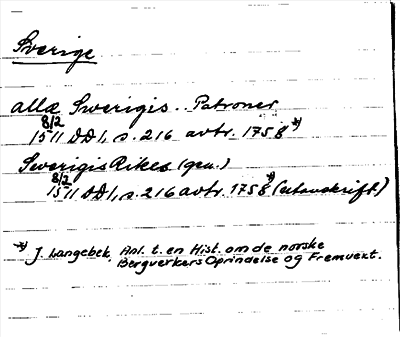 Sverige
allæ Swerigis.. Patroner
8/2 1511 DD1, s. 216 avtr. 1758 *)
Swerigis Rikes (gen.)
8/2 1511 DD1, s. 216 avtr. 1758 *) (utanskrift)
*) J. Langebek, Anl. t. en Hist. om de norske
Bergverkers Oprindelse og Fremvext.